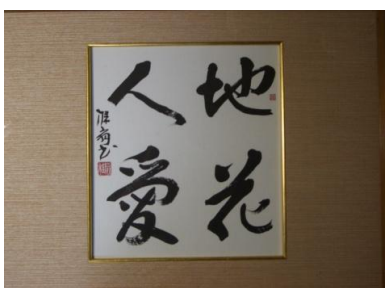 地花
人愛